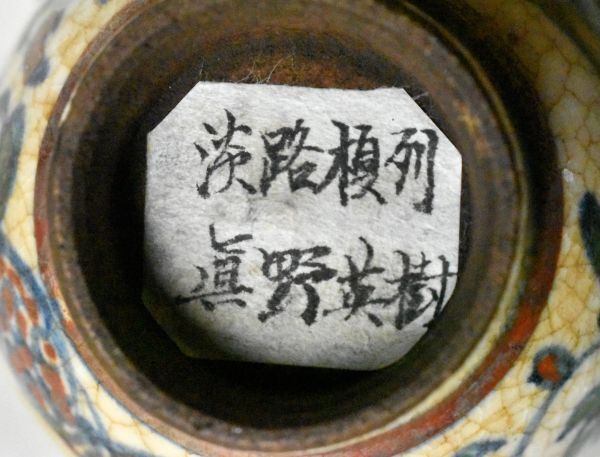 淡路榎列
眞野英樹